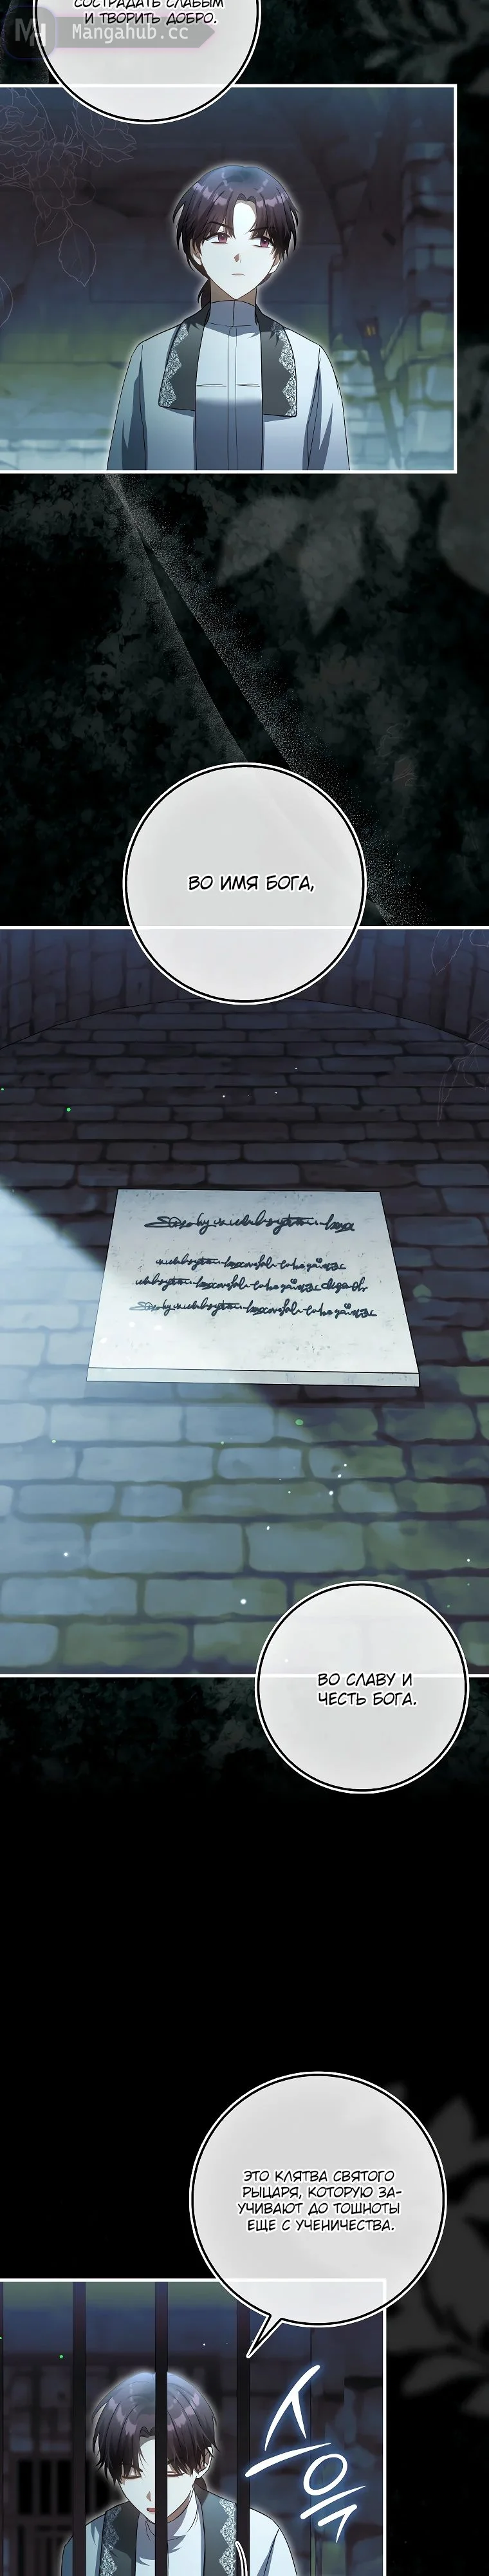 СОСТРАДАТЬ СЛАБЫМ
И ТВОРИТЬ ДОБРО.
Mangahub.cc
ВО ИМЯ БОГА,
ВО СЛАВУ И
ЧЕСТЬ БОГА.
ЭТО КЛЯТВА СВЯТОГО
РЫЦАРЯ, КОТОРУЮ ЗА-
УЧИВАЮТ ДО ТОШНОТЫ
ЕЩЕ С УЧЕНИЧЕСТВА.
스으